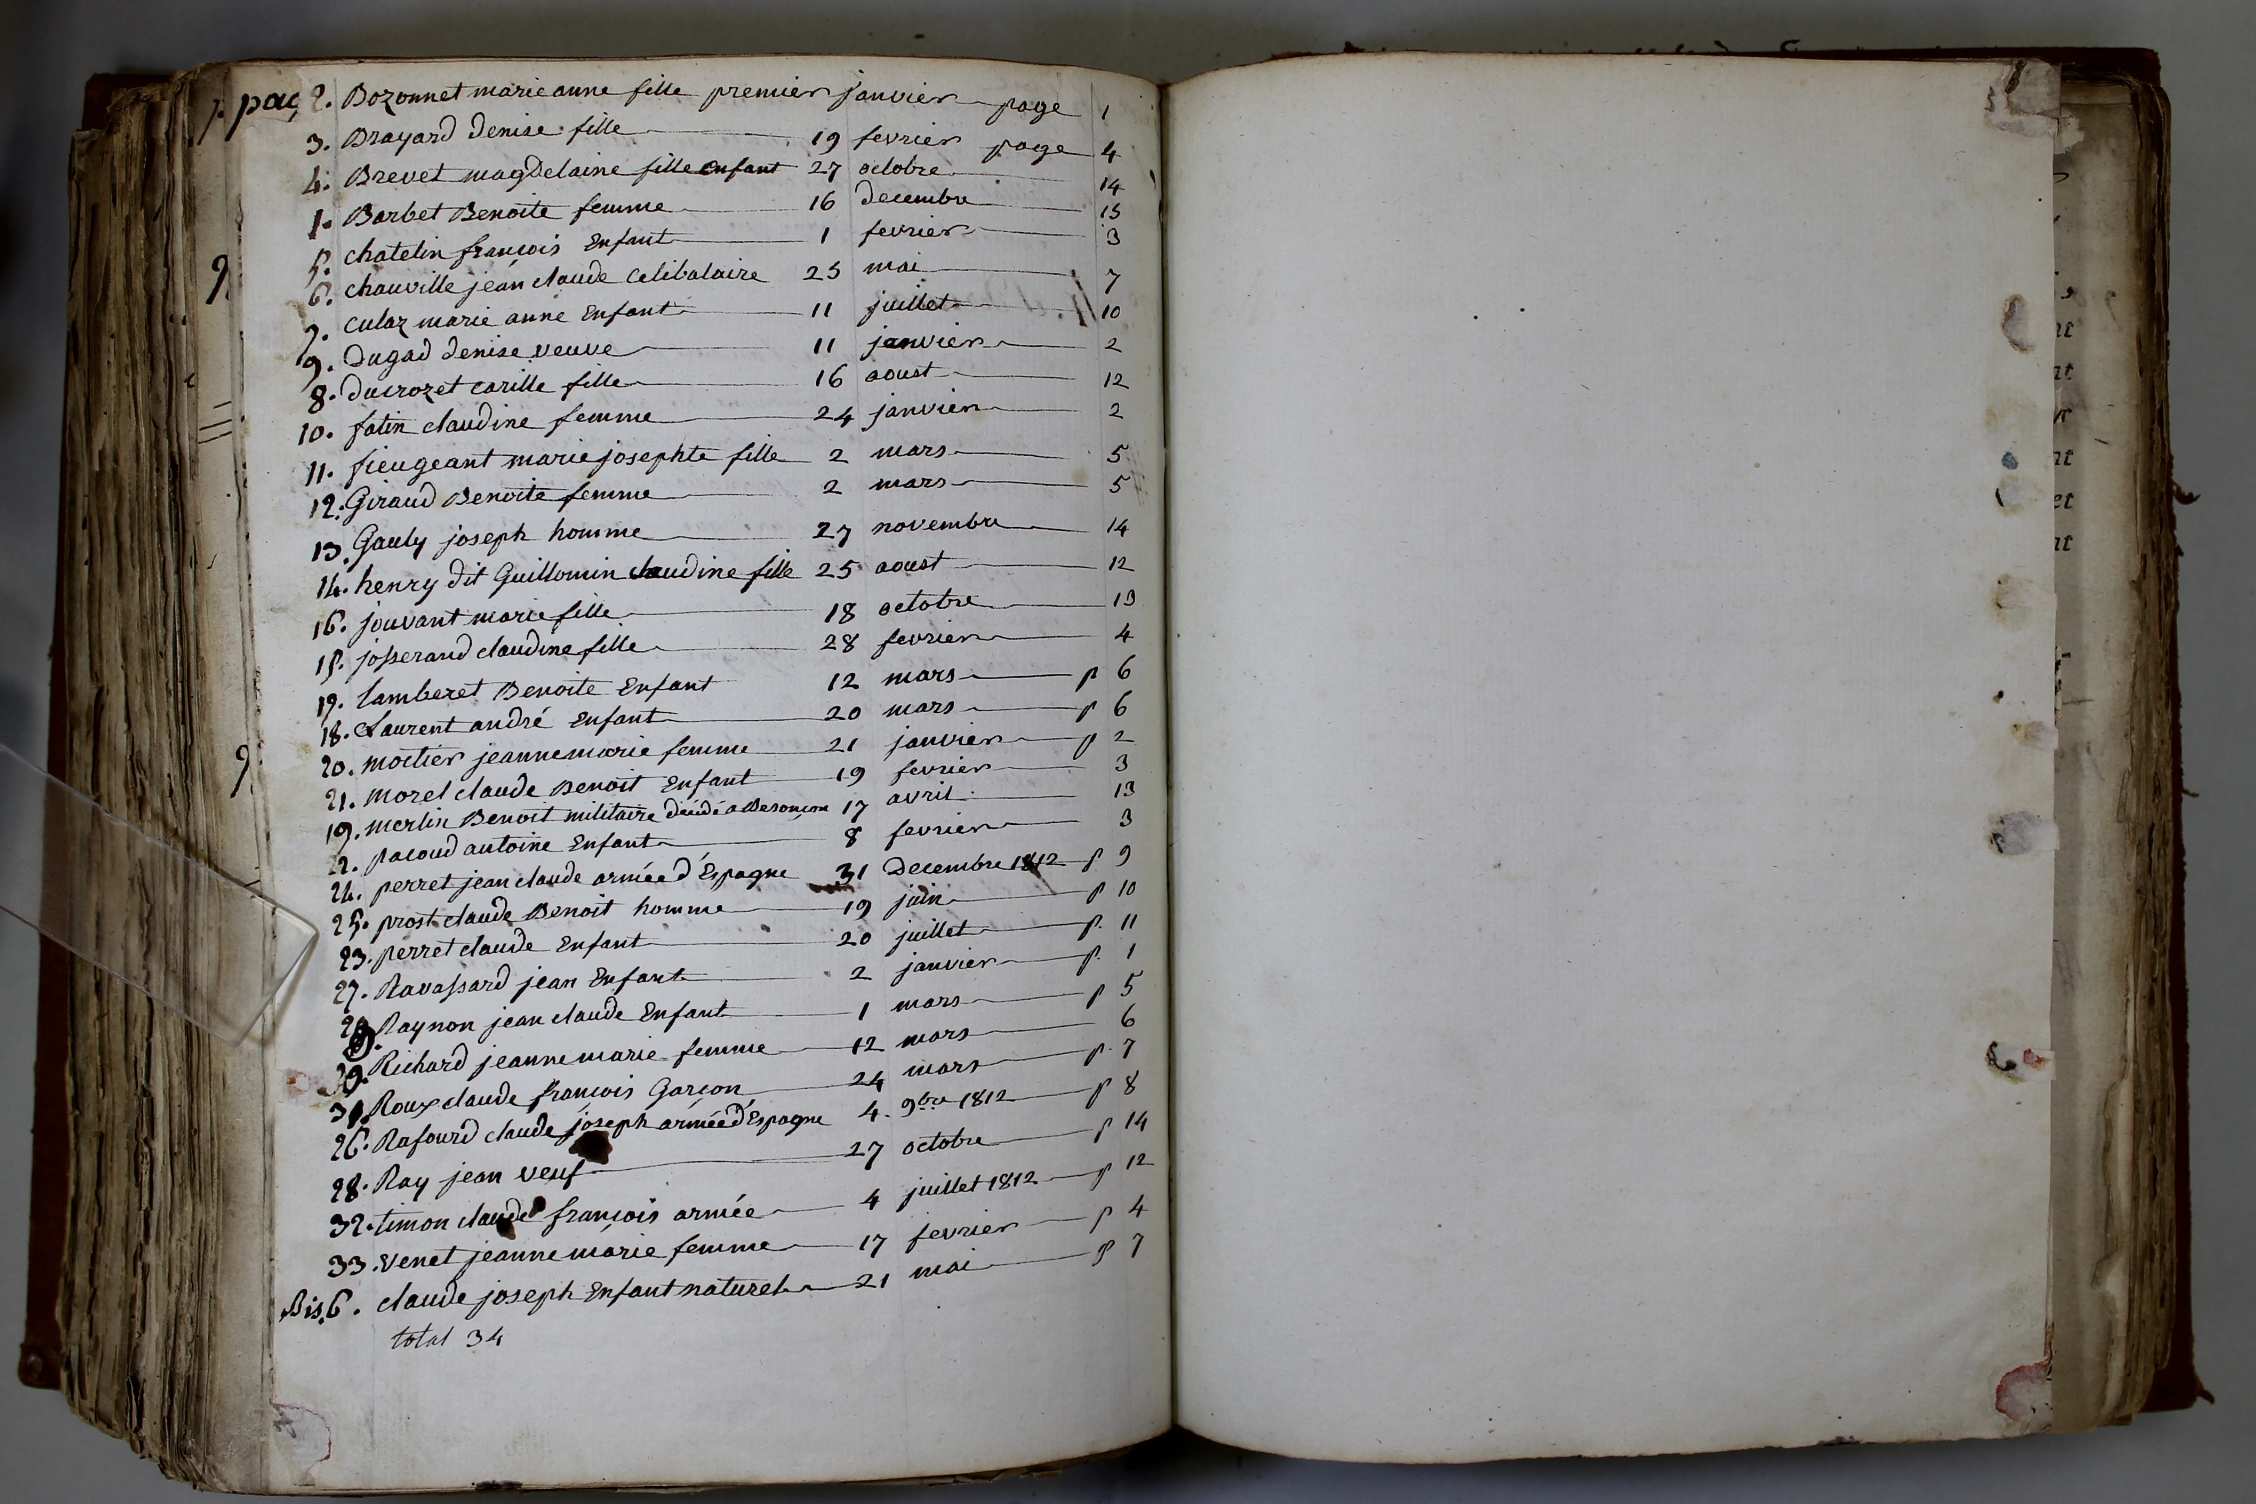 2. Bozonnet marie anne fille premier janvier page 1
3. Brayard denise fille 19 fevrier page 4
4. Brevet magdelaine fille enfant 27 octobre 14
1. Barbet Benoite femme 16 decembre 15
5. chatelin françois Enfant 1 fevrier 3
6. chauville jean claude Celibataire 25 mai 7
7. culaz marie anne Enfant 11 juillet 10
9. Dugad denise veuve 11 janvier 2
8. ducrozet carille fille 16 aoust 12
10. fatin claudine femme 24 janvier 2
11. fieugeant marie josephte fille 2 mars 5
12. Giraud Benoite femme 2 mars 5
13. Gauly joseph homme 27 novembre 14
14. henry dit Guillomin claudine fille 25 aoust 12
16. jouvant marie fille 18 octobre 13
15. josserand claudine fille 28 fevrier 4
17. lamberet Benoite Enfant 12 mars p 6
18. Laurent andré Enfant 20 mars p 6
20. moitier jeanne marie femme 21 janvier p 2
21. morel claude Benoit Enfant 19 fevrier 3
19. merlin Benoit militaire décédé a Besonçon 17 avril 13
22. pacoud antoine Enfant 8 fevrier 3
24. perret jean claude armée d'Espagne 31 Decembre 1812 p 9
25. prost claude Benoit homme 19 juin p 10
23. perret claude Enfant 20 juillet p. 11
27. Ravassard jean Enfant 2 janvier p. 1
29. Raynon jean claude Enfant 1 mars p 5
30. Richard jeanne marie femme 12 mars 6
31. Roux claude françois Garçon 24 mars p. 7
26. Rafourd claude joseph armée d'Espagne 4. 9bre 1812 p 8
28. Ray jean veuf 27 octobre p 14
32. timon claude françois armée 4 juillet 1812 p 12
33. venet jeanne marie femme 17 fevrier p 4
Bis. 6. claude joseph Enfant naturel 21 mai p 7
total 34